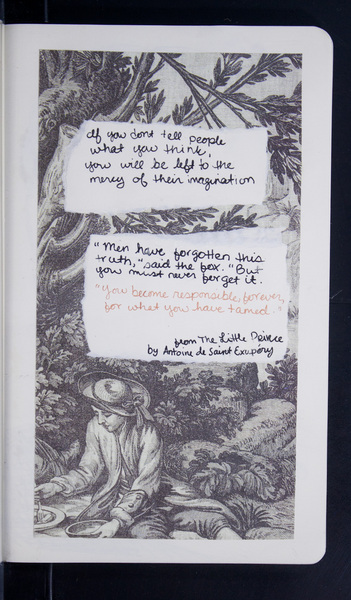 If you dont tell people
what you think,
you will be left to the
mercy of their imagination
"Men have forgotten this
truth," said the fox. "But
you must never forget it.
"You become responsible, forever,
for what you have tamed."
from The Little Prince
by Antoine de Saint Exupéry